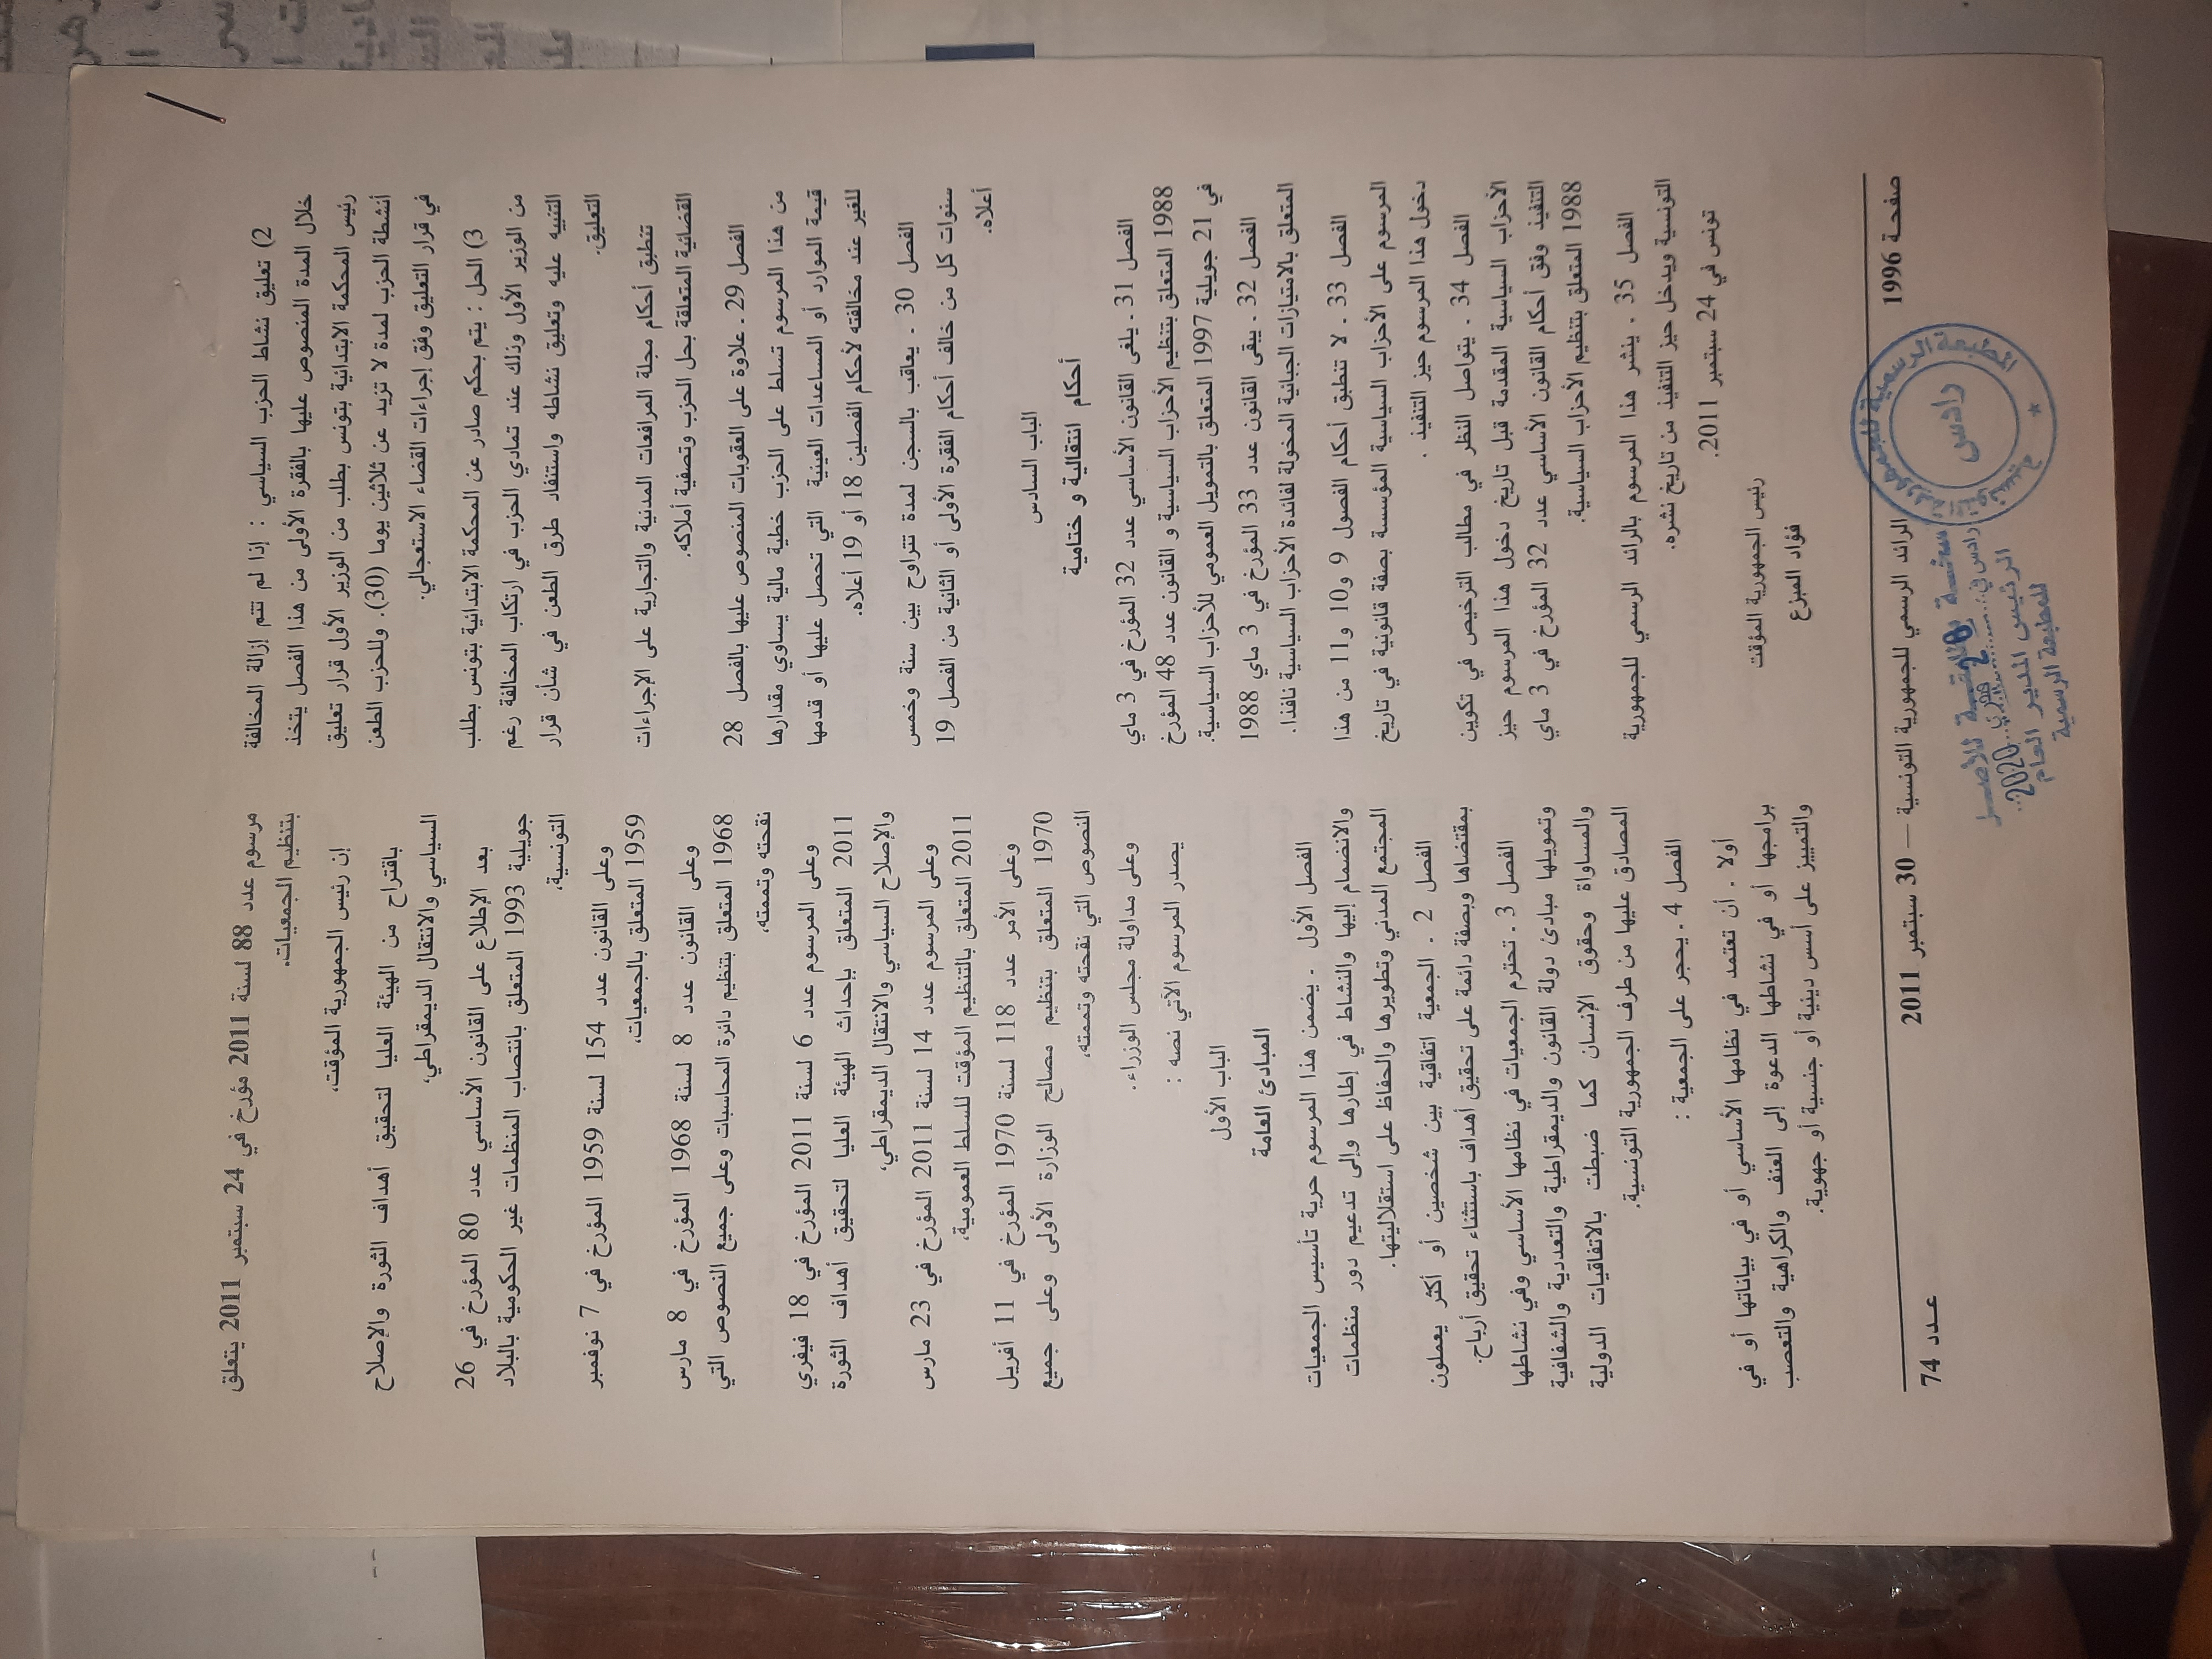 2) تعليق نشاط الحزب السياسي : إذا لم تتم إزالة المخالفة
خلال المدة المنصوص عليها بالفقرة الأولى من هذا الفصل يتخذ
رئيس المحكمة الابتدائية بتونس بطلب من الوزير الأول قرار تعليق
أنشطة الحزب لمدة لا تزيد عن ثلاثين يوما (30). وللحزب الطعن
في قرار التعليق وفق إجراءات القضاء الاستعجالي.
3) الحل : يتم بحكم صادر عن المحكمة الابتدائية بتونس بطلب
من الوزير الأول وذلك عند تمادي الحزب في ارتكاب المخالفة رغم
التنبيه عليه وتعليق نشاطه واستنفاد طرق الطعن في شأن قرار
التعليق.
تنطبق أحكام مجلة المرافعات المدنية والتجارية على الإجراءات
القضائية المتعلقة بحل الحزب وتصفية أملاكه.
الفصل 29 ـ علاوة على العقوبات المنصوص عليها بالفصل 28
من هذا المرسوم تسلط على الحزب خطية مالية يساوي مقدارها
قيمة الموارد أو المساعدات العينية التي تحصل عليها أو قدمها
للغير عند مخالفته لأحكام الفصلين 18 أو 19 أعلاه.
الفصل 30 ـ يعاقب بالسجن لمدة تتراوح بين سنة وخمس
سنوات كل من خالف أحكام الفقرة الأولى أو الثانية من الفصل 19
أعلاه.
الباب السادس
أحكام انتقالية و ختامية
الفصل 31 ـ يلغى القانون الأساسي عدد 32 المؤرخ في 3 ماي
1988 المتعلق بتنظيم الأحزاب السياسية و القانون عدد 48 المؤرخ
في 21 جويلية 1997 المتعلق بالتمويل العمومي للأحزاب السياسية.
الفصل 32 ـ يبقى القانون عدد 33 المؤرخ في 3 ماي 1988
المتعلق بالامتيازات الجبائية المخولة لفائدة الأحزاب السياسية نافذا.
الفصل 33 ـ لا تنطبق أحكام الفصول 9 و10 و11 من هذا
المرسوم على الأحزاب السياسية المؤسسة بصفة قانونية في تاريخ
دخول هذا المرسوم حيز التنفيذ .
الفصل 34 ـ يتواصل النظر في مطالب الترخيص في تكوين
الأحزاب السياسية المقدمة قبل تاريخ دخول هذا المرسوم حيز
التنفيذ وفق أحكام القانون الأساسي عدد 32 المؤرخ في 3 ماي
1988 المتعلق بتنظيم الأحزاب السياسية.
الفصل 35 ـ ينشر هذا المرسوم بالرائد الرسمي للجمهورية
التونسية ويدخل حيز التنفيذ من تاريخ نشره.
تونس في 24 سبتمبر 2011.
رئيس الجمهورية المؤقت
فؤاد المبزع
مرسوم عدد 88 لسنة 2011 مؤرخ في 24 سبتمبر 2011 يتعلق
بتنظيم الجمعيات.
إن رئيس الجمهورية المؤقت،
باقتراح من الهيئة العليا لتحقيق أهداف الثورة والإصلاح
السياسي والانتقال الديمقراطي،
بعد الإطلاع على القانون الأساسي عدد 80 المؤرخ في 26
جويلية 1993 المتعلق بانتصاب المنظمات غير الحكومية بالبلاد
التونسية،
وعلى القانون عدد 154 لسنة 1959 المؤرخ في 7 نوفمبر
1959 المتعلق بالجمعيات،
وعلى القانون عدد 8 لسنة 1968 المؤرخ في 8 مارس
1968 المتعلق بتنظيم دائرة المحاسبات وعلى جميع النصوص التي
نقحته وتممته،
وعلى المرسوم عدد 6 لسنة 2011 المؤرخ في 18 فيفري
2011 المتعلق بإحداث الهيئة العليا لتحقيق أهداف الثورة
والإصلاح السياسي والانتقال الديمقراطي،
وعلى المرسوم عدد 14 لسنة 2011 المؤرخ في 23 مارس
2011 المتعلق بالتنظيم المؤقت للسلط العمومية،
وعلى الأمر عدد 118 لسنة 1970 المؤرخ في 11 أفريل
1970 المتعلق بتنظيم مصالح الوزارة الأولى وعلى جميع
النصوص التي نقحته وتممته،
وعلى مداولة مجلس الوزراء.
يصدر المرسوم الآتي نصه :
الباب الأول
المبادئ العامة
الفصل الأول ـ يضمن هذا المرسوم حرية تأسيس الجمعيات
والانضمام إليها والنشاط في إطارها وإلى تدعيم دور منظمات
المجتمع المدني وتطويرها والحفاظ على استقلاليتها.
الفصل 2 ـ الجمعية اتفاقية بين شخصين أو أكثر يعملون
بمقتضاها وبصفة دائمة على تحقيق أهداف باستثناء تحقيق أرباح.
الفصل 3 ـ تحترم الجمعيات في نظامها الأساسي وفي نشاطها
وتمويلها مبادئ دولة القانون والديمقراطية والتعددية والشفافية
والمساواة وحقوق الإنسان كما ضبطت بالاتفاقيات الدولية
المصادق عليها من طرف الجمهورية التونسية.
الفصل 4 ـ يحجر على الجمعية :
أولا ـ أن تعتمد في نظامها الأساسي أو في بياناتها أو في
برامجها أو في نشاطها الدعوة إلى العنف والكراهية والتعصب
والتمييز على أسس دينية أو جنسية أو جهوية.
صفحة 1996
الرائد الرسمي للجمهورية التونسية — 30 سبتمبر 2011
عدد 74
المطبعة الرسمية للجمهورية التونسية
رادس
رادس في 2020
الرئيس المدير العام
للمطبعة الرسمية